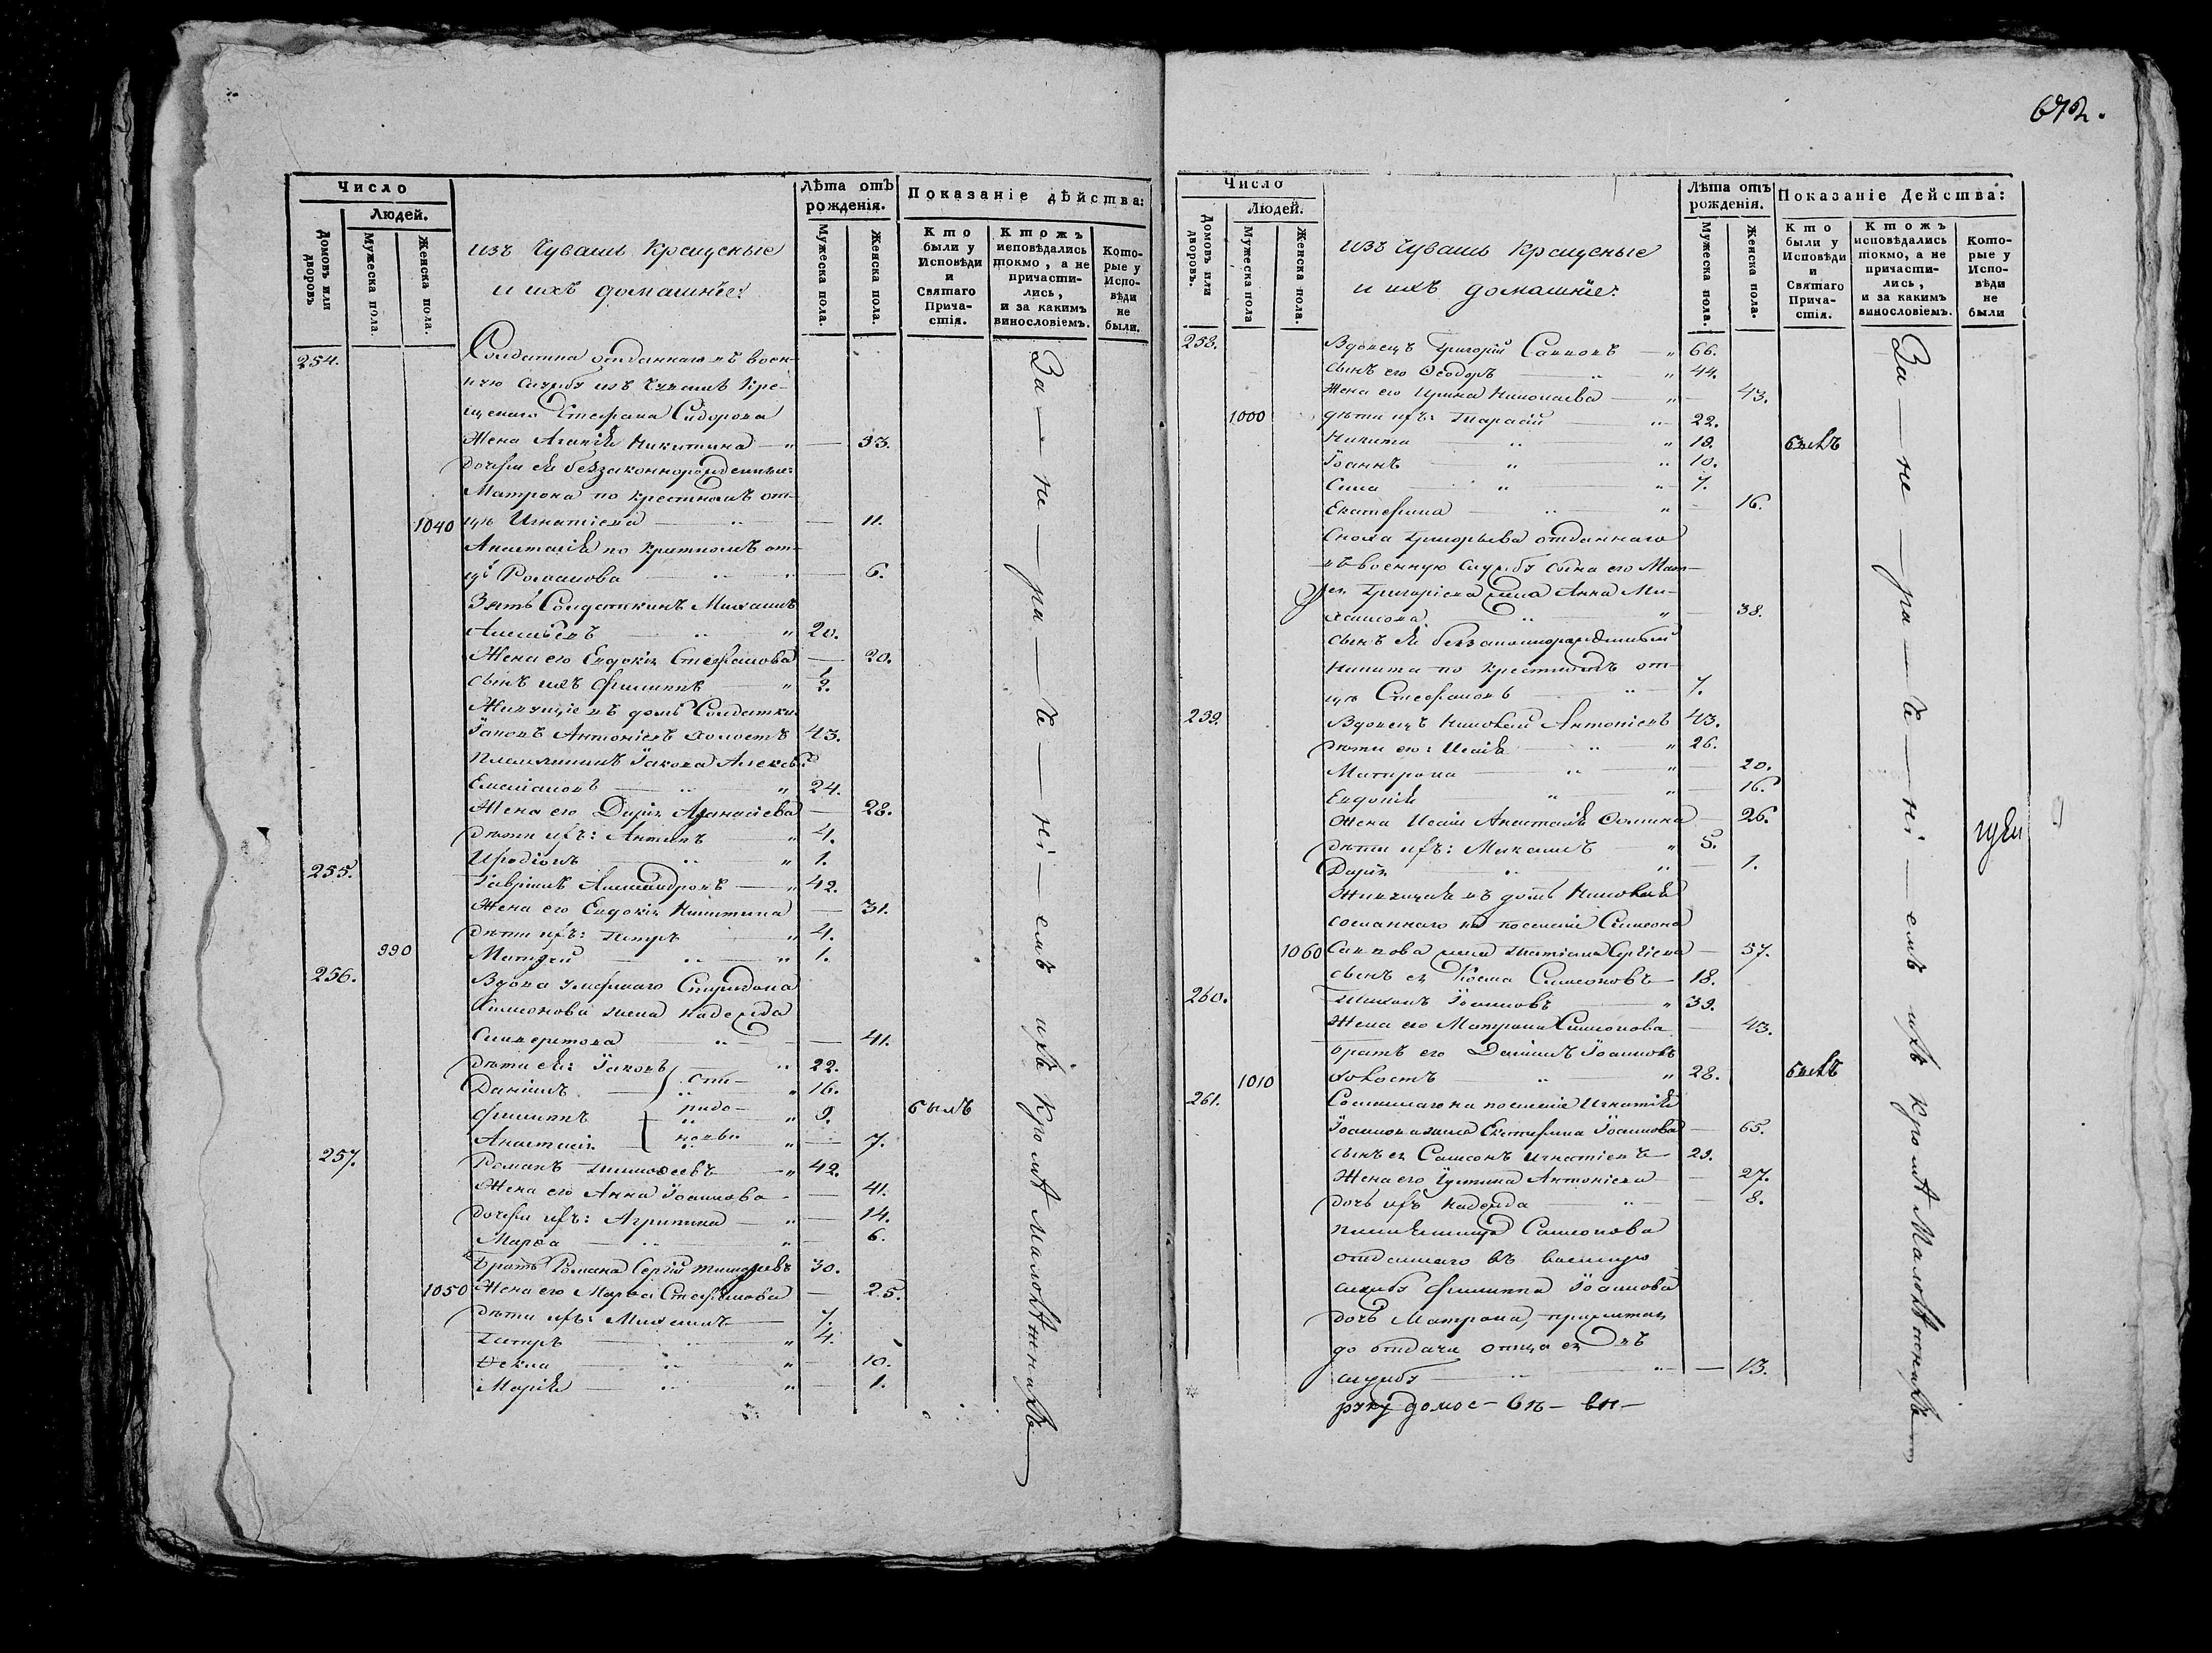 672.
Число
Людей.
Домовъ или дворовъ
Мужеска пола.
Женска пола.
изъ Чувашъ Крещеные
и ихъ домашнїе:
Лѣта отъ рожденія.
Мужеска пола.
Женска пола.
Показаніе дѣйства:
Кто были у Исповѣди и Святаго Причастія.
Ктожъ исповѣдались токмо, а не причастились, и за какимъ винословіемъ.
Которые у Исповѣди не были.
254. Солдатка отданнаго въ воен-
ную службу изъ Чувашъ Кре-
щенаго Стефана Сидорова
Жена Агафія Никитина 33.
дочери ея беззаконнорожденныя:
Матрона по крестномъ от-
1040 цѣ Игнатіева 11.
Анастасія по крестномъ от-
цѣ Романова 6.
Зять Солдаткинъ Михаилъ
Алексѣевъ 20.
Жена его Евдокія Стефанова 20.
сынъ ихъ Филиппъ 2.
Живущіе въ домѣ Солдатки
Іаковъ Антоніевъ холостъ 43.
племянникъ Іакова Алексѣй
Емеліановъ 24.
Жена его Дарія Афанасіева 28.
дѣти ихъ: Антипъ 4.
Иродіонъ 1.
255. Гавріилъ Александровъ 42.
Жена его Евдокія Никитина 31.
дѣти ихъ: Петръ 4.
990 Матфей 1.
256. Вдова умершаго Спиридона
Симеонова жена Надежда
41.
дѣти ея: Іаковъ 22.
Даніилъ 16.
Филиппъ 9. былъ
Анастасія 7.
257. Романъ Тимофеевъ 42.
Жена его Анна Іоаннова 41.
дочери ихъ: Агрипина 14.
Марѳа 6.
Братъ Романа Сергій Тимофеевъ 30.
1050 Жена его Марѳа Стефанова 25.
дѣти ихъ: Михаилъ 7.
Петръ 4.
Ѳекла 10.
Марія 1.
За-не-ра-че-ні-емъ ихъ Кромѣ Малолѣтнихъ
Число
Людей.
Домовъ или дворовъ.
Мужеска пола
Женска пола.
изъ Чувашъ Крещеные
и ихъ домашнїе:
Лѣта отъ рожденія.
Мужеска пола.
Женска пола.
Показаніе Дейсшва:
Кто были у Исповѣди и Святаго Причастія.
Ктожъ исповѣдались токмо, а не причастились, и за какимъ винословіемъ.
Которые у Исповѣди не были
258. Вдовецъ Григорій Савновъ 66.
сынъ его Ѳеодоръ 44.
Жена его Ирина Николаева 43.
1000 дѣти ихъ: Тарасій 22.
Никита 18. былъ
Іоаннъ 10.
Сила 7.
Екатерина 16.
Сноха Григорьева отданнаго
въ военную службу сына его Мат-
фея Григоріева жена Анна Ми-
хаилова 38.
сынъ ея беззаконнорожденный
Никита по крестномъ от-
цѣ Стефановъ 7.
259. Вдовецъ Николай Антоніевъ 43.
дѣти его: Исаія 26.
Матрона 20.
Евдокія 16.
Жена Исаіи Анастасія Ѳомина 26.
дѣти ихъ: Михаилъ 5.
Дарія 1.
Живущая въ домѣ Николая
сосланнаго на поселеніе Симеона
1060 Савнова жена Татіана Сергіева 57.
сынъ ея Косма Симеоновъ 18.
260. Тихонъ Іоанновъ 39.
Жена его Матрона Симеонова 43.
братъ его Даніилъ Іоанновъ
1010 холостъ 28. былъ
261. Сосланнаго на поселеніе Игнатія
Іоаннова жена Екатерина Іоаннова 65.
сынъ ея Самсонъ Игнатіевъ 29.
Жена его Іустина Антоніева 27.
дочь ихъ Надежда 8.
племянница Самсонова
отданнаго въ военную
службу Филиппа Іоаннова
дочь Матрона, прижитая
до отдачи отца ея въ
службу 13.
руку домое- въ-
За-не-ра-че-ні-емъ ихъ Кромѣ Малолѣтнихъ